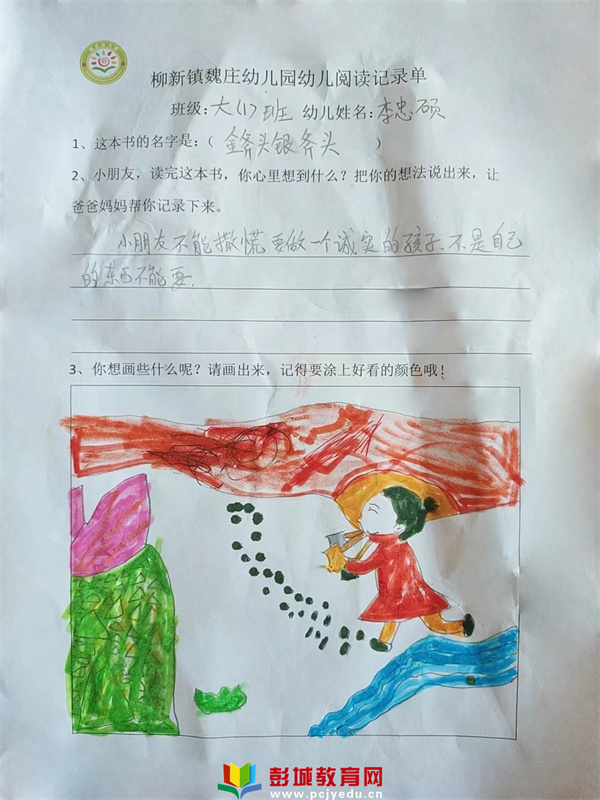 柳新镇魏庄幼儿园幼儿阅读记录单
班级:大(1)班 幼儿姓名:李忠硕
1、这本书的名字是:( 金斧头银斧头 )
2、小朋友,读完这本书,你心里想到什么?把你的想法说出来,让
爸爸妈妈帮你记录下来。
小朋友不能撒慌要做一个诚实的孩子.不是自己
的东西不能要.
3、你想画些什么呢?请画出来,记得要涂上好看的颜色哦!
彭城教育网
www.pcjyedu.cn